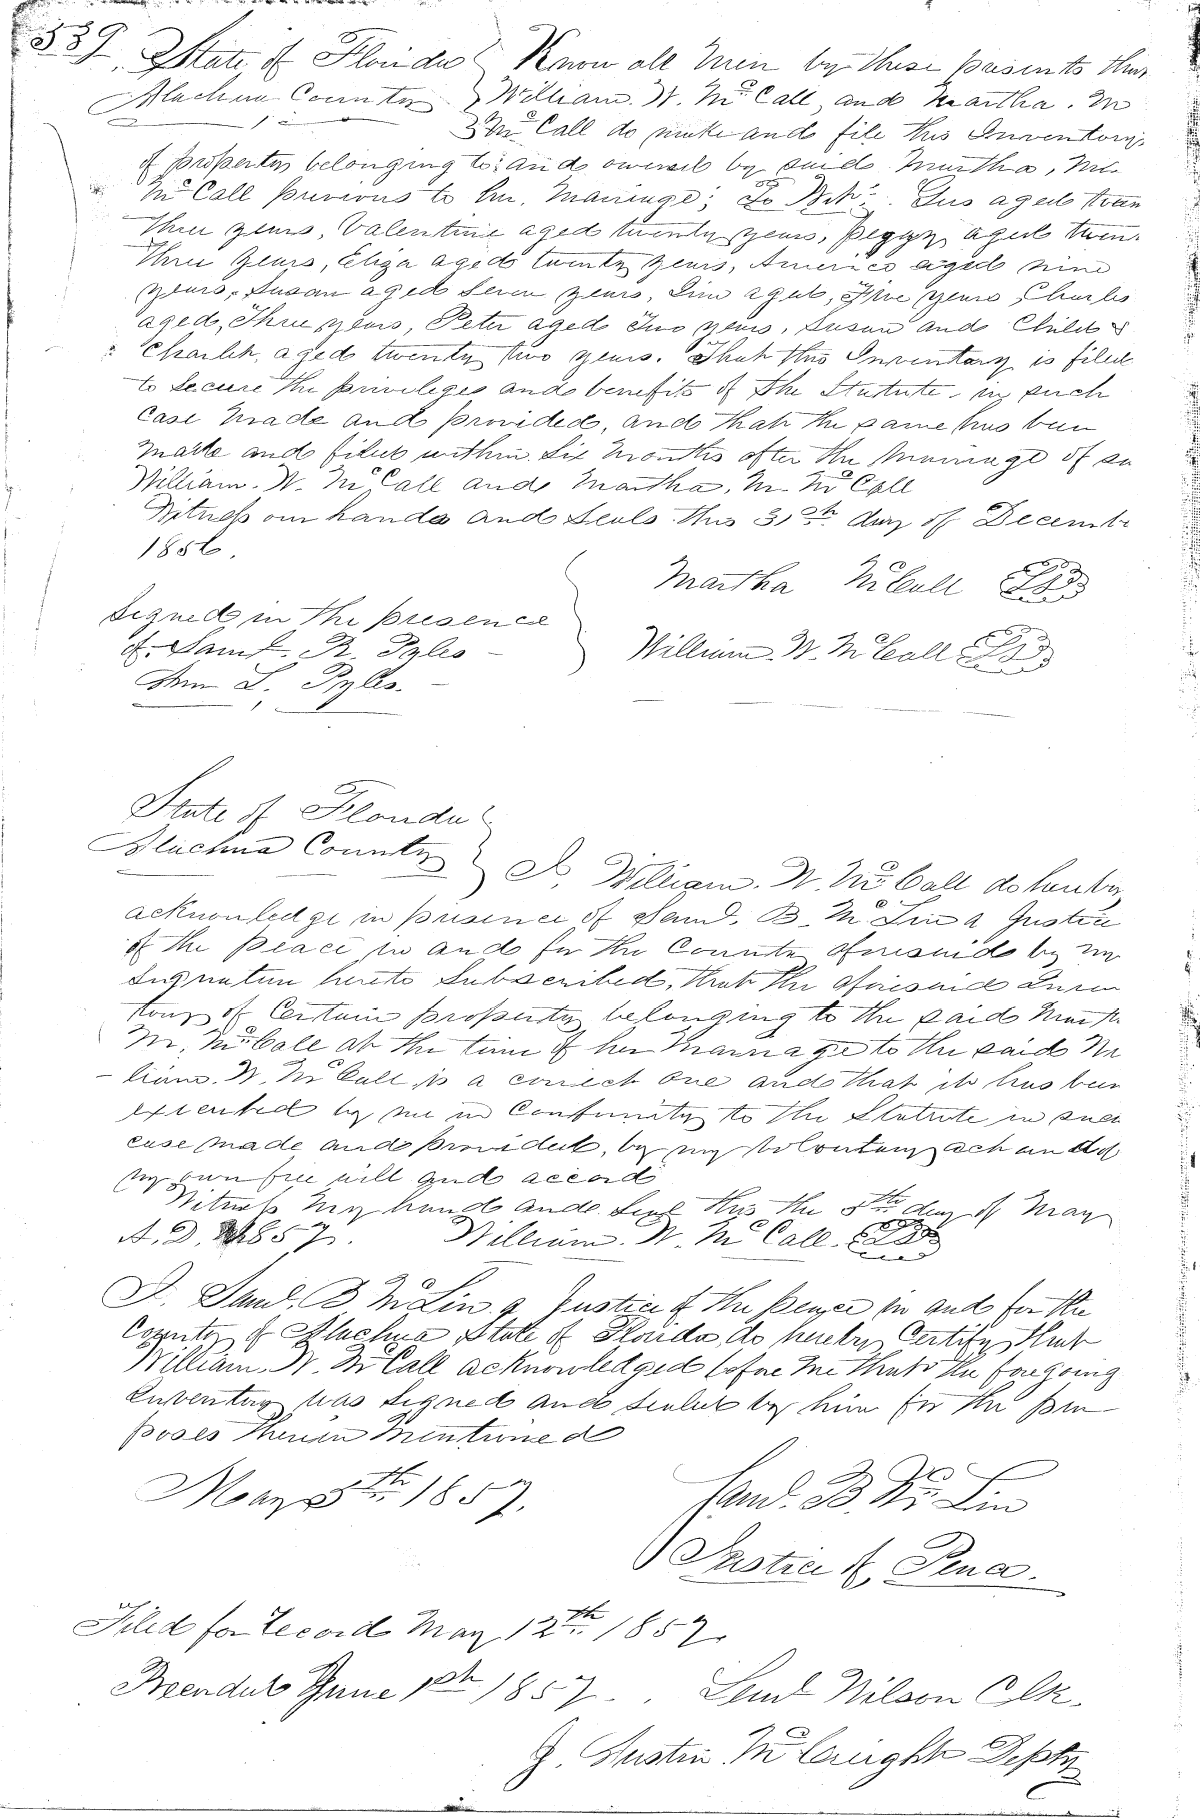 539. State of Florida } Know all men by these presents that
Alachua County } William. W. McCall, and Martha. M
McCall do make and file this Inventory
of property belonging to; and owened by said Martha, M.
McCall previous to her. Marriage; To Wit: Gus aged twen
three years, Valentine aged twenty years, Peggy aged twen.
three years, Eliza aged twenty years, America aged nine
years, Susan aged Seven years, Jim aged, Five years, Charles
aged, Three years, Peter aged Two years, Susan and Child
aged twenty two years. That this Inventory is filed
to Secure the privileges and benefits of the Statute, in such
Case made and provided, and that the same has been
made and filed within Six months after the Marriage of sa
William. W. McCall and Martha. M. McCall
Witness our hands and Seals this 31st day of Decembe
1856.
Martha McCall
Signed in the presence
of. Saml. R. Pyles
William. W. McCall
John L. Pyles.
State of Florida }
Alachua County } I, William. W. McCall do hereby
acknowledge in presence of Saml. B. McLin a Justice
of the peace in and for the County aforesaid by my
Signature hereto Subscribed, that the aforesaid Inven
tory of Certain property belonging to the said Marth
M. McCall at the time of her Marriage to the said Wi
liam. W. McCall is a correct one and that it has been
executed by me in Conformity to the Statute in such
case made and provided, by my voluntary act and of
my own free will and accord
Witness my hand and Seal this the 5th day of May
A. D. 1857. William. W. McCall.
I. Saml. B. McLin. a Justice of the peace in and for the
County of Alachua State of Florida, do hereby Certify that
William. W. McCall acknowledged before me that the foregoing
Inventory was Signed and sealed by him for the pur
poses therein mentioned
May 5th 1857.
Saml. B. McLin
Justice of Peace.
Filed for record May 12th 1857.
June 1st 1857. Saml Wilson Clk.
J. Austin Depty